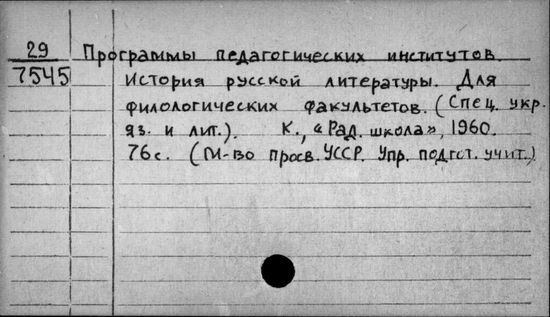 29 Программы педагогических институтов.
7545 История русской литературы. Для
филологических факультетов. (Спец. укр.
яз. и лит.). К., «Рад. школа», 1960.
76с. (М-во просв. УССР. Упр. подгот. учит.)